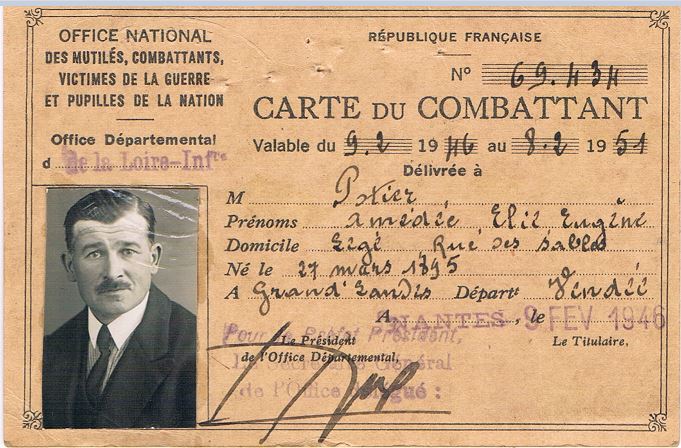 OFFICE NATIONAL
DES MUTILÉS, COMBATTANTS,
VICTIMES DE LA GUERRE
ET PUPILLES DE LA NATION
Office Départemental
d de la Loire-Infre
RÉPUBLIQUE FRANÇAISE
No 69.434
CARTE DU COMBATTANT
Valable du 9.2 1946 au 8.2 1951
Délivrée à
M Potier
Prénoms Amédée Elie Eugène
Domicile Legé Rue des Sables
Né le 27 mars 1895
A Grand'Landes Départt Vendée
A NANTES, le 9 FEV 1946
Pour le Préfet Président,
Le Président
de l'Office Départemental,
Le Titulaire,
Le Secrétaire Général
de l'Office délégué :